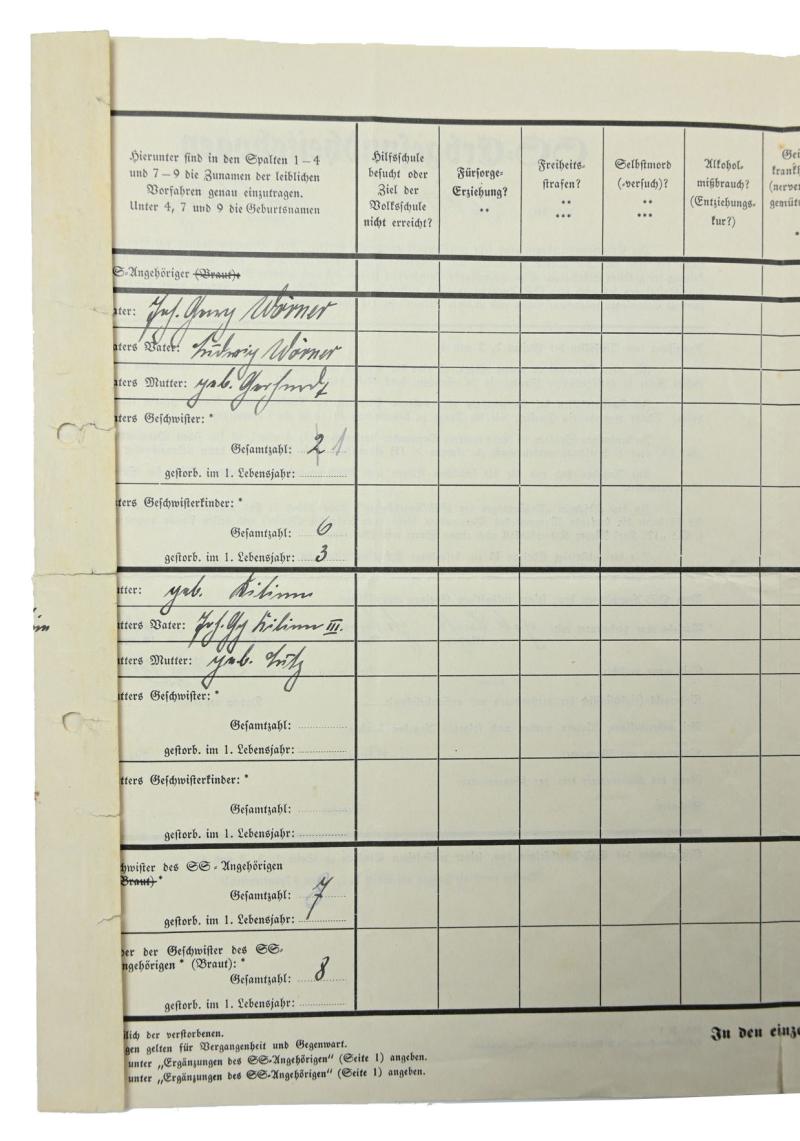 Hierunter sind in den Spalten 1–4
und 7–9 die Zunamen der leiblichen
Vorfahren genau einzutragen.
Unter 4, 7 und 9 die Geburtsnamen
Hilfsschule
besucht oder
Ziel der
Volksschule
nicht erreicht?
Fürsorge-
Erziehung?
**
Freiheits-
strafen?
**
***
Selbstmord
(-versuch)?
**
***
Alkohol-
mißbrauch?
(Entziehungs-
kur?)
Gei
krankh
(nerven
gemüts
*
SS-Angehöriger (Braut):
ater: Joh. Georg Wörner
aters Vater: Ludwig Wörner
aters Mutter: geb. Gerhardt
aters Geschwister: *
Gesamtzahl: 2 1
gestorb. im 1. Lebensjahr:
aters Geschwisterkinder: *
Gesamtzahl: 6
gestorb. im 1. Lebensjahr: 3
utter: geb. Kilian
utters Vater: Joh. Gg Kilian III.
utters Mutter: geb. Lutz
utters Geschwister: *
Gesamtzahl:
gestorb. im 1. Lebensjahr:
utters Geschwisterkinder: *
Gesamtzahl:
gestorb. im 1. Lebensjahr:
chwister des SS-Angehörigen
Braut) *
Gesamtzahl: 7
gestorb. im 1. Lebensjahr:
der der Geschwister des SS-
ngehörigen * (Braut): *
Gesamtzahl: 8
gestorb. im 1. Lebensjahr:
lich der verstorbenen.
gen gelten für Vergangenheit und Gegenwart.
unter „Ergänzungen des SS-Angehörigen" (Seite 1) angeben.
unter „Ergänzungen des SS-Angehörigen" (Seite 1) angeben.
In den einze